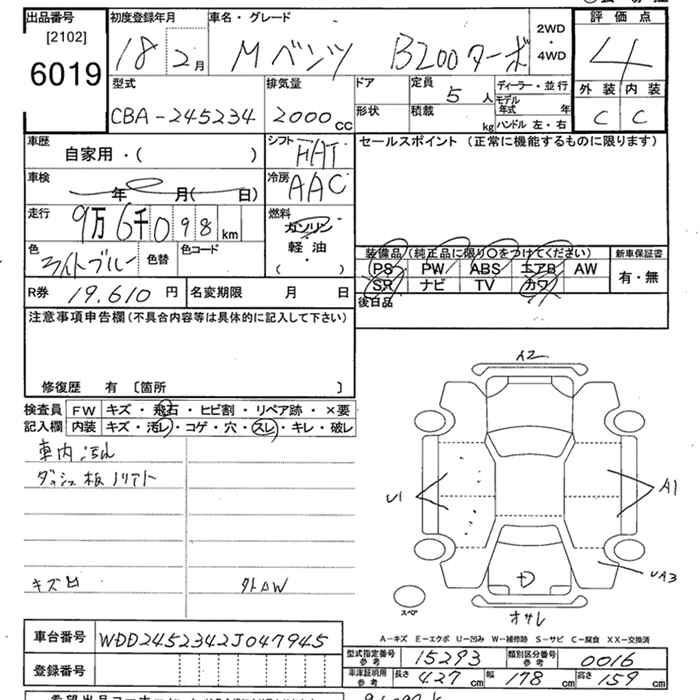 出品番号 初度登録年月 車名・グレード 2WD・4WD 評価点
[2102] 6019 18 2月 Mベンツ B200ターボ 4
型式 排気量 ドア 定員 5人 ディーラー・並行 外装 内装
CBA-245234 2000cc 形状 積載 kg モデル年式 年 ハンドル 左・右 C C
車歴 自家用・( ) シフト FAT セールスポイント (正常に機能するものに限ります)
車検 年 月( 日) 冷房 AAC
走行 9万6千098km 燃料 ガソリン 軽油 ( )
色 ライトブルー 色替 色コード 装備品 (純正品に限り○をつけてください) 新車保証書
PS PW ABS エアB AW 有・無
SR ナビ TV カワ
R券 19,610円 名変期限 月 日 後日品
注意事項申告欄 (不具合内容等は具体的に記入して下さい)
修復歴 有 〔箇所 〕
検査員 FW キズ・飛石・ヒビ割・リペア跡・×要
記入欄 内装 キズ・汚レ・コゲ・穴・スレ・キレ・破レ
車内
ダッシュ板ノリアト
キズ凹
A2
U1
A1
UA3
スペア
A-キズ E-エクボ U-凹み W-補修跡 S-サビ C-腐食 XX-交換済
車台番号 WDD2452342J047945
登録番号
型式指定番号 参考 15293 類別区分番号 参考 0016
車庫証明用 参考 長さ 427cm 幅 178cm 高さ 159cm